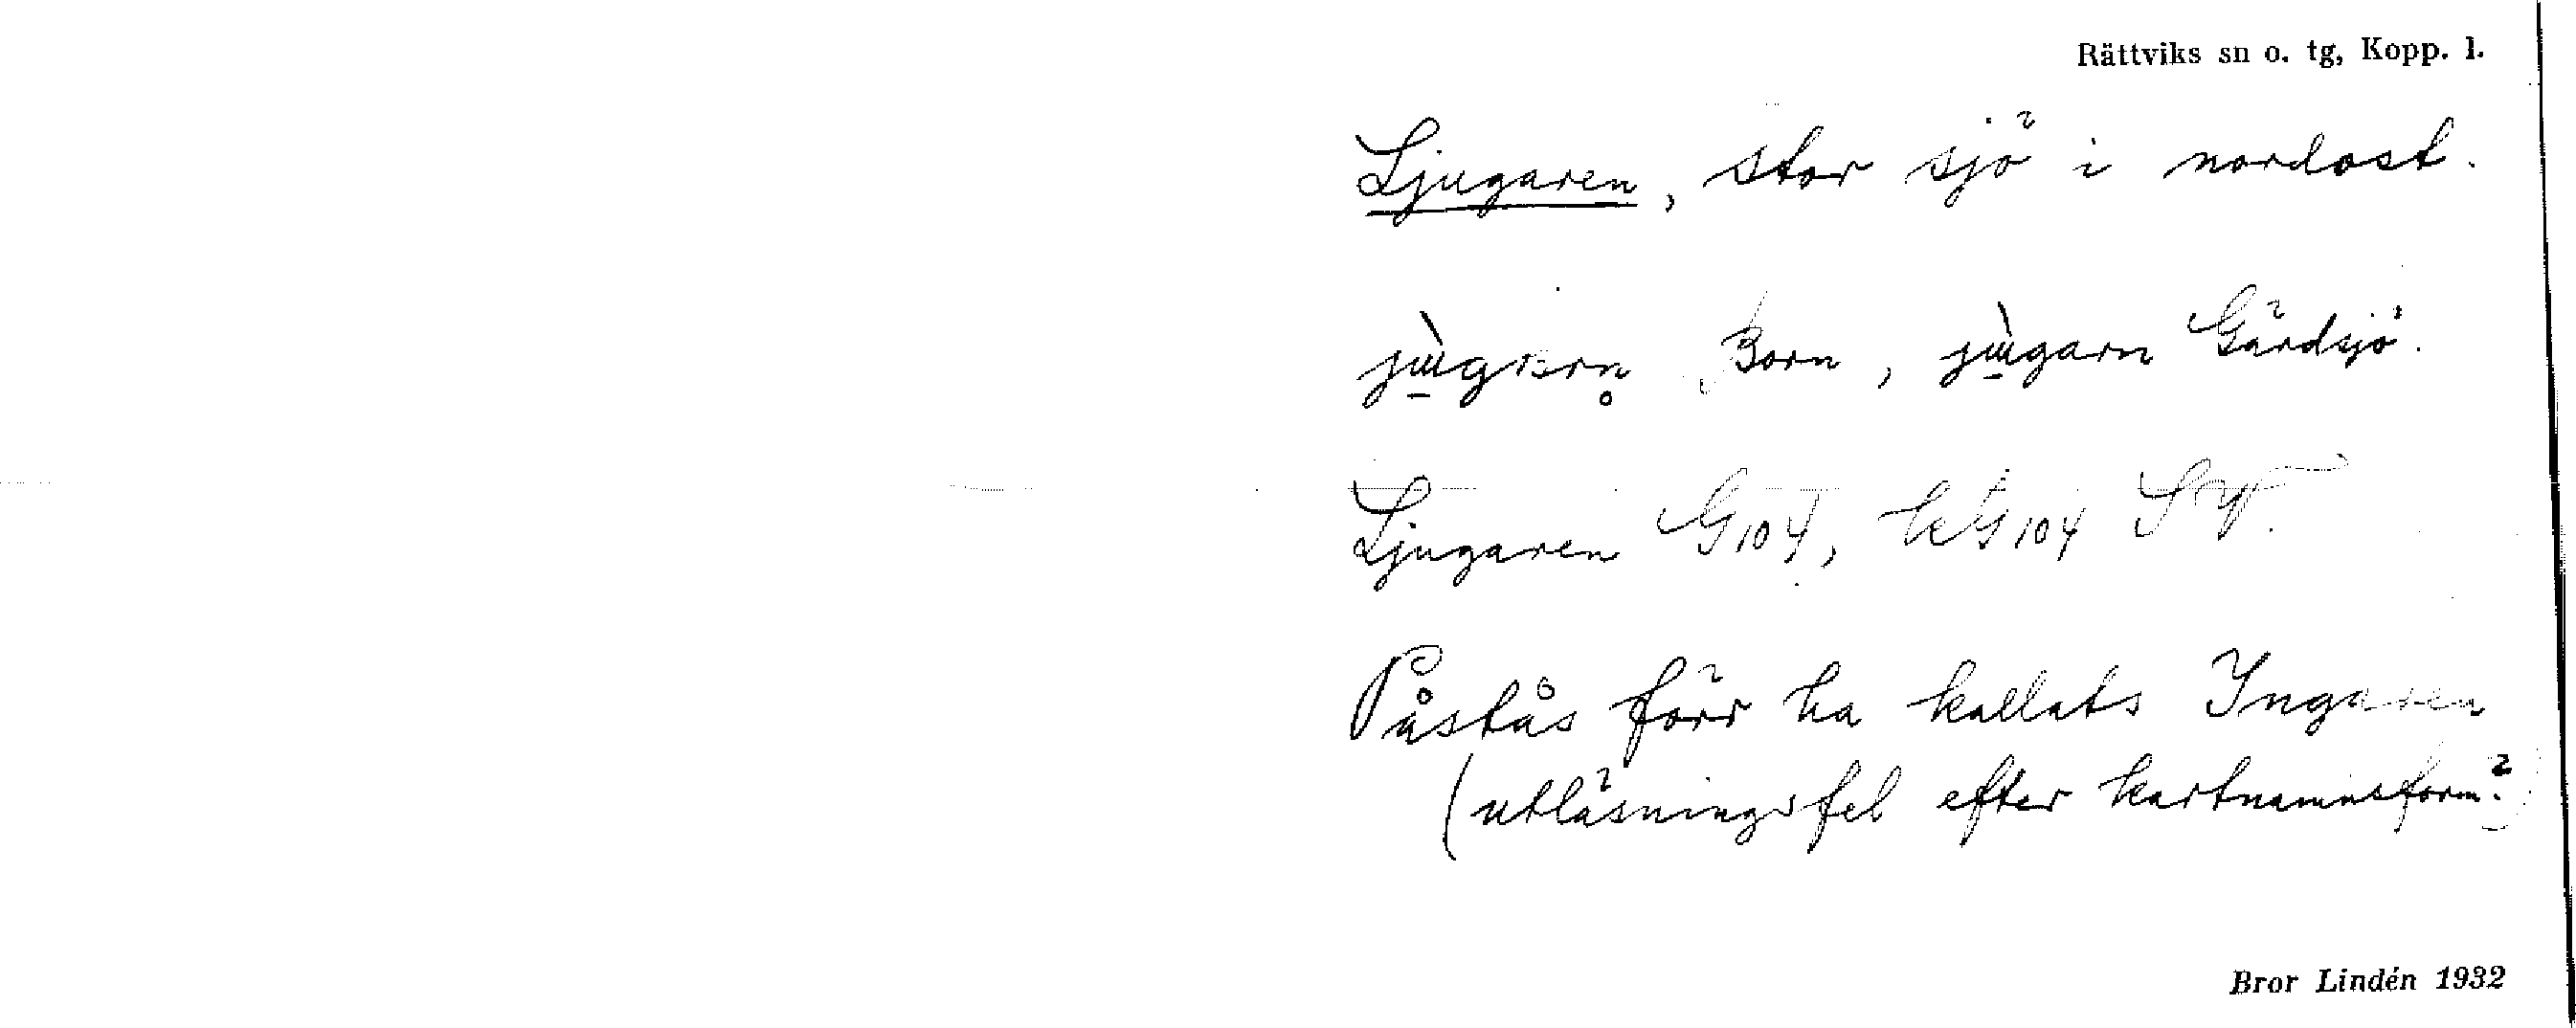 Rättviks sn o. tg, Kopp. l.
Ljugaren, stor sjö i nordost.
Born, Gärdsjö.
Ljugaren G104, kG104
Påstås förr ha kallats Yngaren
(utläsningsfel efter kartnamnsform?)
Bror Lindén 1932